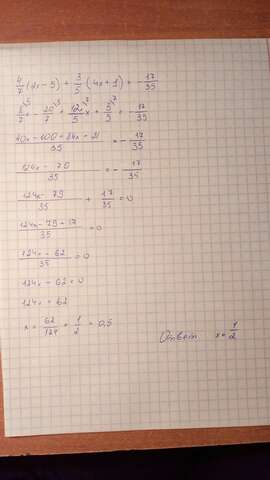 4/7 (2x - 5) + 3/5 (4x + 1) = - 17/35
8/7 x - 20/7 + 12/5 x + 3/5 = - 17/35
40x - 100 + 84x + 21 / 35 = - 17/35
124x - 79 / 35 = - 17/35
124x - 79 / 35 + 17/35 = 0
124x - 79 + 17 / 35 = 0
124x - 62 / 35 = 0
124x - 62 = 0
124x = 62
x = 62/124 = 1/2 = 0,5
Ответ x = 1/2